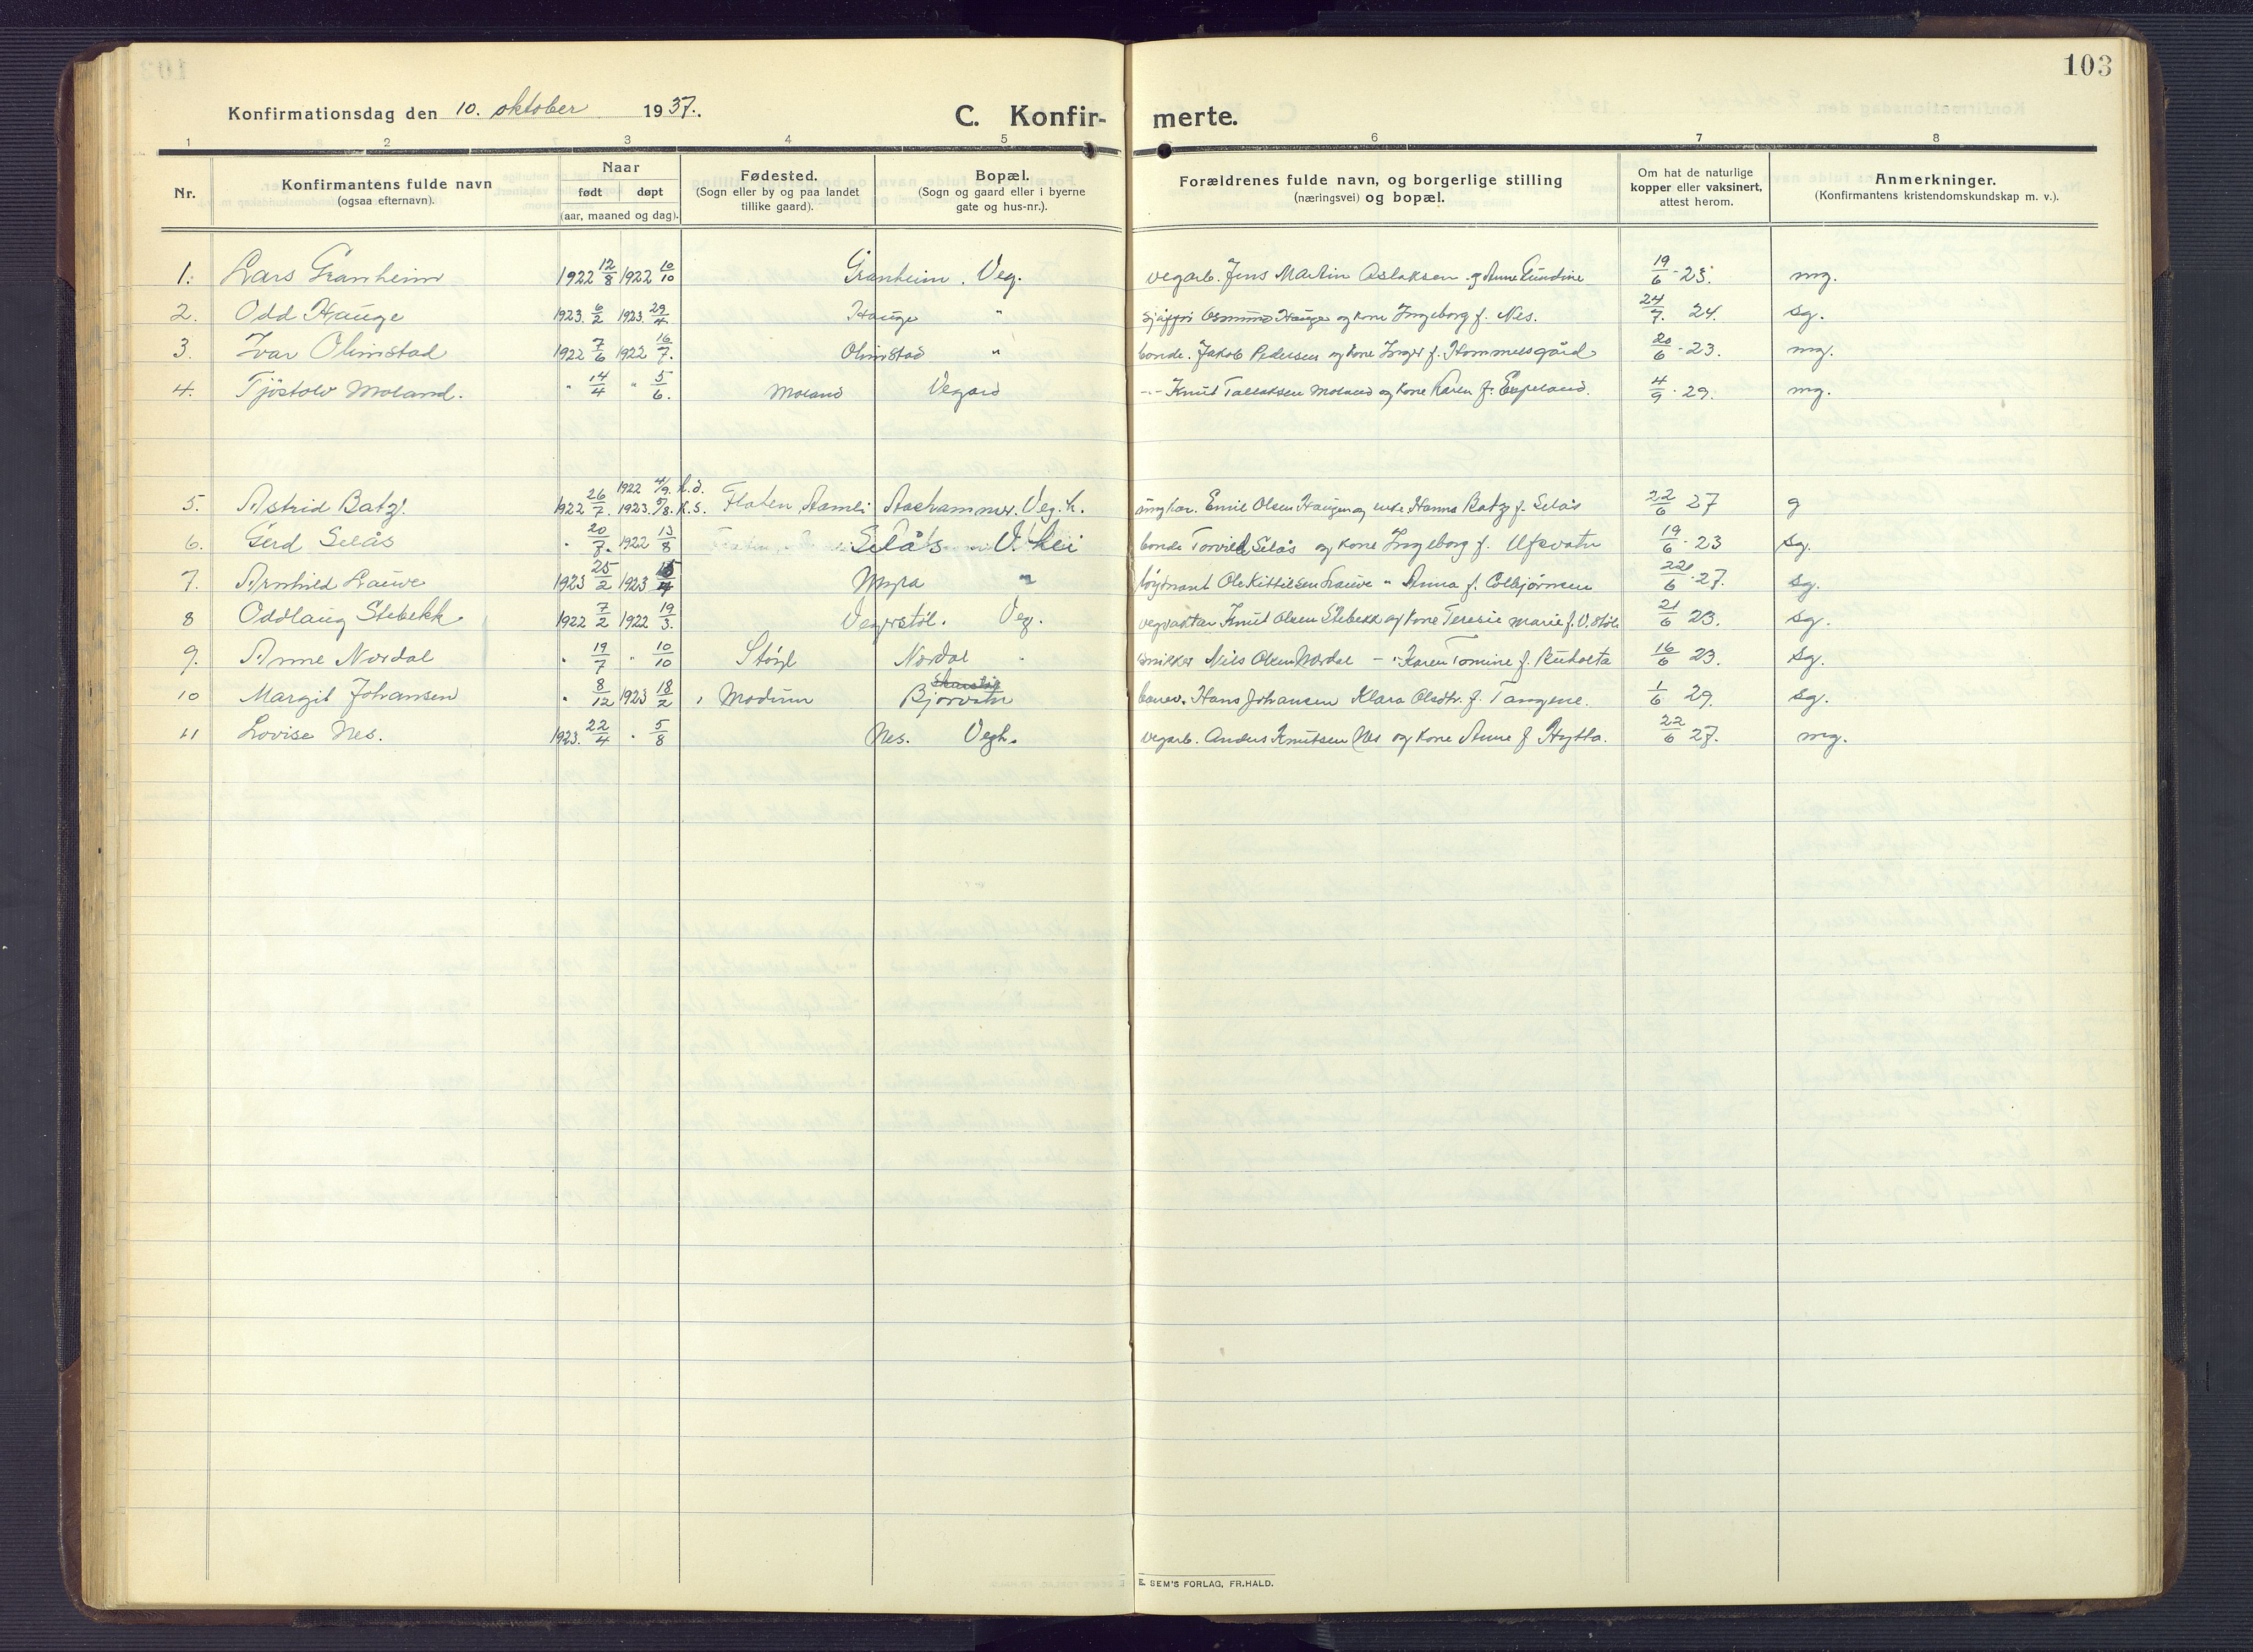 103
Konfirmationsdag den 10. oktober 1937.
C. Konfir- merte.
1 2 3 4 5 6 7 8
Nr. Konfirmantens fulde navn (ogsaa efternavn). Naar født døpt (aar, maaned og dag). Fødested. (Sogn eller by og paa landet tillike gaard). Bopæl. (Sogn og gaard eller i byerne gate og hus-nr.). Forældrenes fulde navn, og borgerlige stilling (næringsvei) og bopæl. Om hat de naturlige kopper eller vaksinert, attest herom. Anmerkninger. (Konfirmantens kristendomskundskap m. v.).
1. Lars Granheim 1922 12/8 1922 10/10 Granheim. Veg. vegarb. Jens Martin Aslaksen og Anne Gundine 19/6 - 23. mg.
2. Odd Hauge 1923. 6/2 1923. 29/4 Hauge " Osmund Hauge og kone Ingeborg f. Nes. 24/7. 24. sg.
3. Ivar Olimstad 1922 7/6 1922 16/7. Olimstad " bonde. Jakob Pedersen og kone Inger f. Hommelsgård 20/6 - 23. mg.
4. Tjöstolv Moland. " 14/4 " 5/6. Moland Vegard -"- Knut Tallaksen Moland og kone Karen f. Espeland. 4/9 - 29. mg.
5. Astrid Batz. 1922 26/7. 1922 4/9. h.d. 1923. 5/8. k.s. Flaten Aamli Aashammer. Veg. h. ungkar. Emil Olsen Haugen og enke Hanna Batz f. Selås 22/6 27 g
6. Gerd Selås " 20/7. 1922 13/8 Selås V. hei bonde Torvild Selås og kone Ingeborg f. Ufsvatn 19/6 - 23 sg.
7. Arnhild Lauve 1923 25/2 1923 Myra " Ole Kittilsen Lauve " Anna f. Colbjørnsen 22/6 - 27. sg.
8 Oddlaug Stebekk 1922 7/2 1922 19/3. Vegerstöl. Veg. vegvakter Knut Olsen Stebekk og kone Teresie Marie f. V.støl 21/6 23. sg.
9. Anne Nordal " 19/7 " 10/10 Nordal " snikker Nils Olsen Nordal - " - Karen Tomine f. 16/6 23. sg.
10 Margit Johansen " 8/12 1923 18/2 Modum Bjorvatn Hans Johansen Klara Olsdtr. f. Tangene. 1/6 29. sg.
11 Lovise Nes. 1923. 22/4 " 5/8 Nes. Vegh. vegarb. Anders Knutsen Nes og kone Anne f Hytta. 22/6 27. mg.
E. SEM'S FORLAG, FR.HALD.